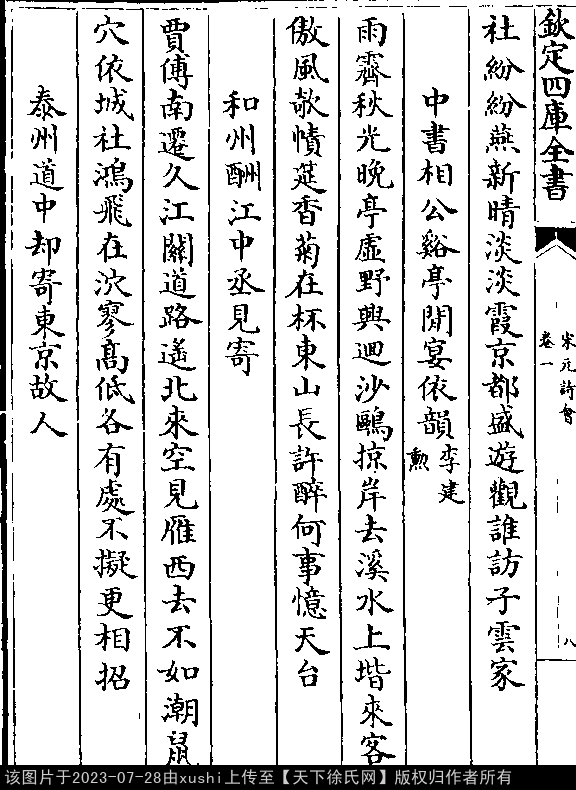 欽定四庫全書
宋元詩會
卷一
八
社紛紛燕新晴淡淡霞京都盛遊觀誰訪子雲家
中書相公谿亭閒宴依韻李建勲
雨霽秋光晩亭虛野興迴沙鷗掠岸去溪水上堦來客
傲風欹幘筵香菊在杯東山長許醉何事憶天台
和州酬江中丞見寄
賈傅南遷久江關道路遥北來空見雁西去不如潮鼠
穴依城社鴻飛在泬寥髙低各有處不擬更相招
泰州道中却寄東京故人
该图片于2023-07-28由xushi上传至【天下徐氏网】版权归作者所有